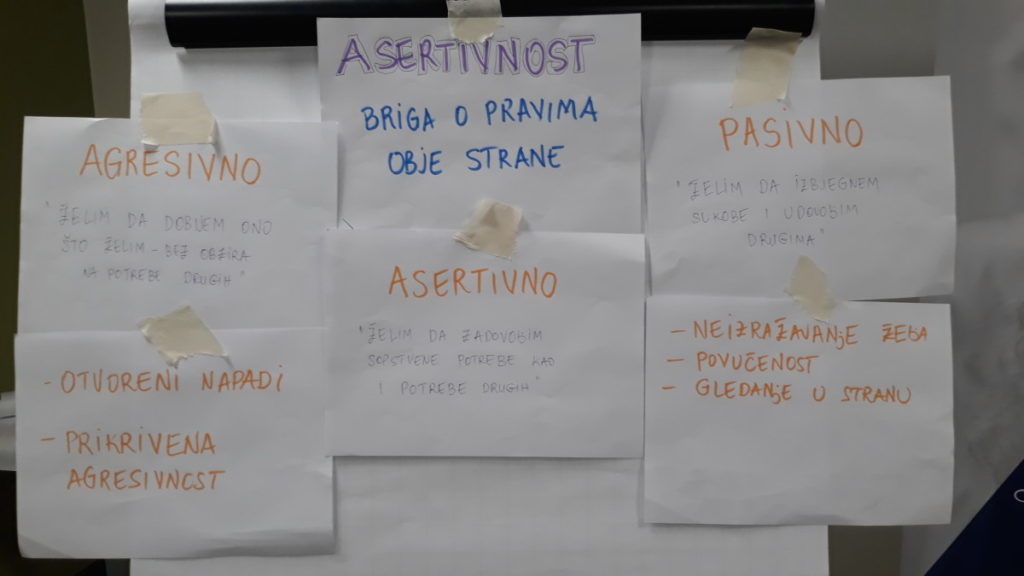 ASERTIVNOST
BRIGA O PRAVIMA
OBJE STRANE
AGRESIVNO
"ŽELIM DA DOBIJEM ONO
ŠTO ŽELIM - BEZ OBZIRA
NA POTREBE DRUGIH"
- OTVORENI NAPADI
- PRIKRIVENA
AGRESIVNOST
ASERTIVNO
"ŽELIM DA ZADOVOLJIM
SOPSTVENE POTREBE KAO
I POTREBE DRUGIH"
PASIVNO
"ŽELIM DA IZBJEGNEM
SUKOBE I UDOVOLJIM
DRUGIMA"
- NEIZRAŽAVANJE ŽELJA
- POVUČENOST
- GLEDANJE U STRANU